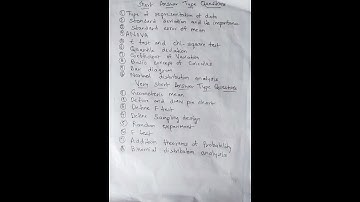 Short Answer Type Questions
① Type of representation of data
② Standard deviation and its importance
③ Standard error of mean
④ ANOVA
⑤ t test and chi-square test
⑥ Quartile deviation
⑦ Coefficient of Variation
⑧ Basic concept of
⑨ Bar diagram
⑩ Normal distribution analysis
Very Short Answer Type Questions
① Geometric mean
② Define and draw pie chart
③ Define F test
④ Define Sampling design
⑤ Random experiment
⑥ t test
⑦ Addition theorems of Probability
⑧ Binomial distribution analysis